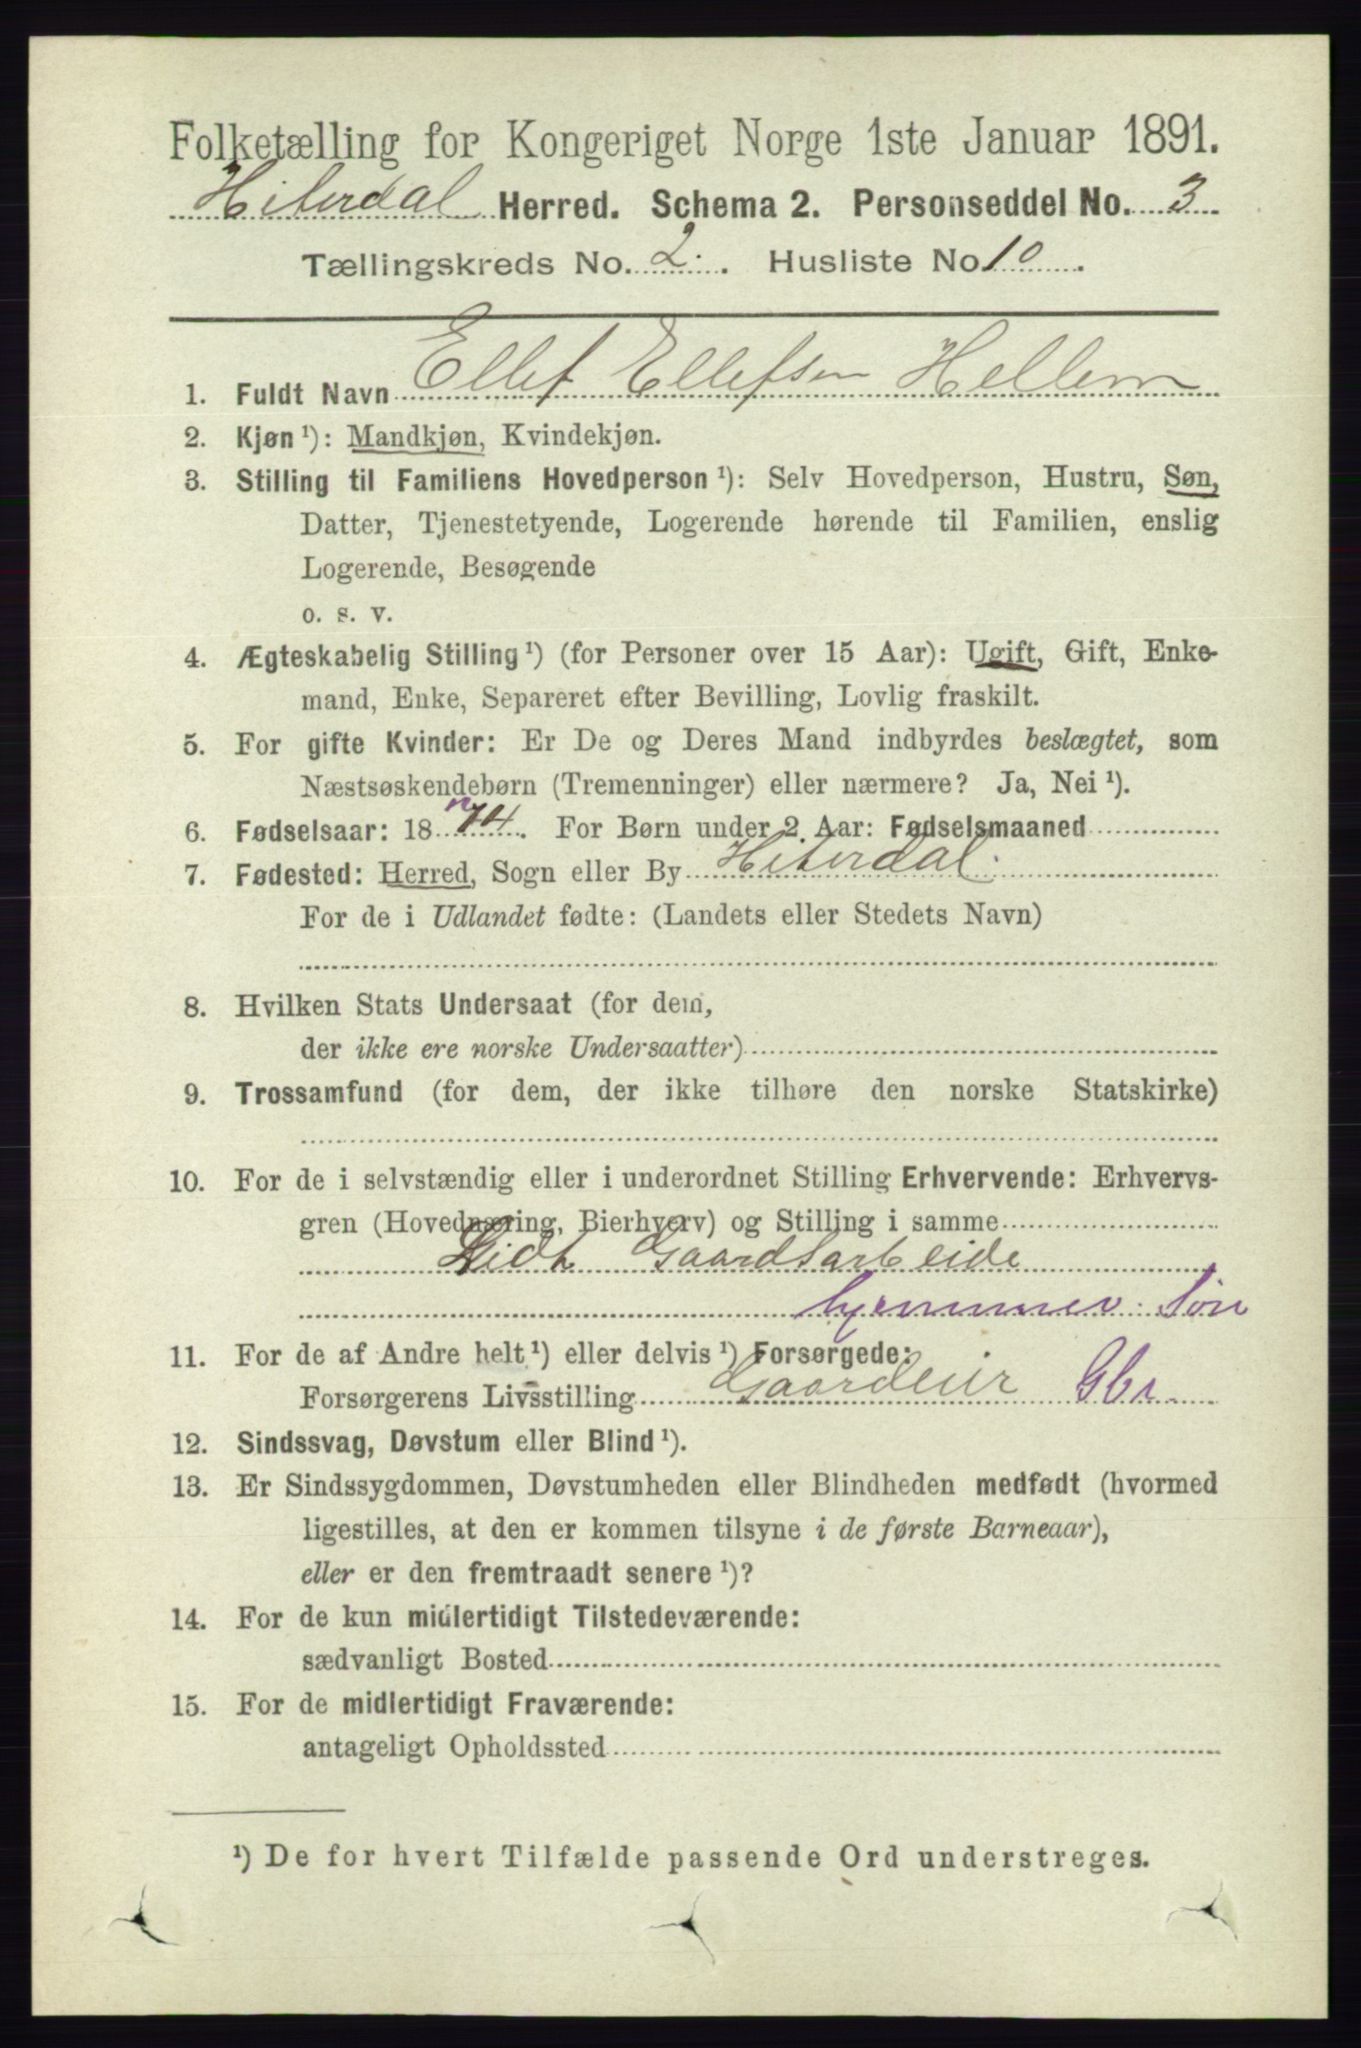 Folketælling for Kongeriget Norge 1ste Januar 1891.
Hiterdal Herred. Schema 2. Personseddel No. 3
Tællingskreds No. 2. Husliste No 10.
1. Fuldt Navn Ellef Ellefsen Hellem
2. Kjøn ¹): Mandkjøn, Kvindekjøn.
3. Stilling til Familiens Hovedperson ¹): Selv Hovedperson, Hustru, Søn,
Datter, Tjenestetyende, Logerende hørende til Familien, enslig
Logerende, Besøgende
o. s. v.
4. Ægteskabelig Stilling ¹) (for Personer over 15 Aar): Ugift, Gift, Enke-
mand, Enke, Separeret efter Bevilling, Lovlig fraskilt.
5. For gifte Kvinder: Er De og Deres Mand indbyrdes beslægtet, som
Næstsøskendebørn (Tremenninger) eller nærmere? Ja, Nei ¹).
6. Fødselsaar: 1874. For Børn under 2 Aar: Fødselsmaaned
7. Fødested: Herred, Sogn eller By Hiterdal.
For de i Udlandet fødte: (Landets eller Stedets Navn)
8. Hvilken Stats Undersaat (for dem,
der ikke ere norske Undersaatter)
9. Trossamfund (for dem, der ikke tilhøre den norske Statskirke)
10. For de i selvstændig eller i underordnet Stilling Erhvervende: Erhvervs-
gren (Hovednæring, Bierhverv) og Stilling i samme
Lidt Gaardsarbeide
hjemmev. Søn
11. For de af Andre helt ¹) eller delvis ¹) Forsørgede:
Forsørgerens Livsstilling Gaardeier Gbr.
12. Sindssvag, Døvstum eller Blind ¹).
13. Er Sindssygdommen, Døvstumheden eller Blindheden medfødt (hvormed
ligestilles, at den er kommen tilsyne i de første Barneaar),
eller er den fremtraadt senere ¹)?
14. For de kun midlertidigt Tilstedeværende:
sædvanligt Bosted
15. For de midlertidigt Fraværende:
antageligt Opholdssted
¹) De for hvert Tilfælde passende Ord understreges.